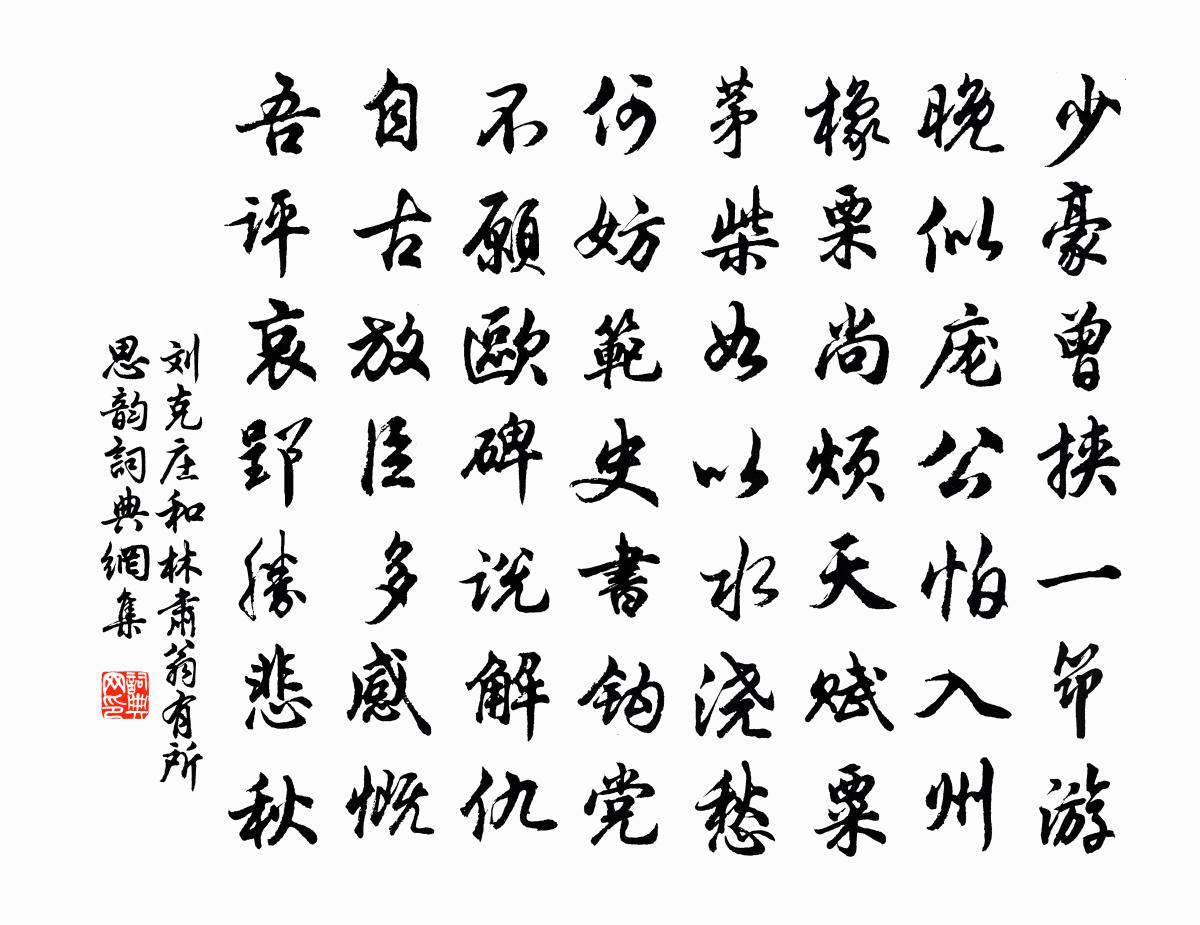 少豪曾挟一筇游
晚似庞公怕入州
橡栗尚烦天赋粟
茅柴如以水浇愁
何妨範史書钩党
不願歐碑说解仇
自古放臣多感慨
吾评哀郢勝悲秋
刘克庄和林肃翁有所
思韵詞典網集
詞典网印